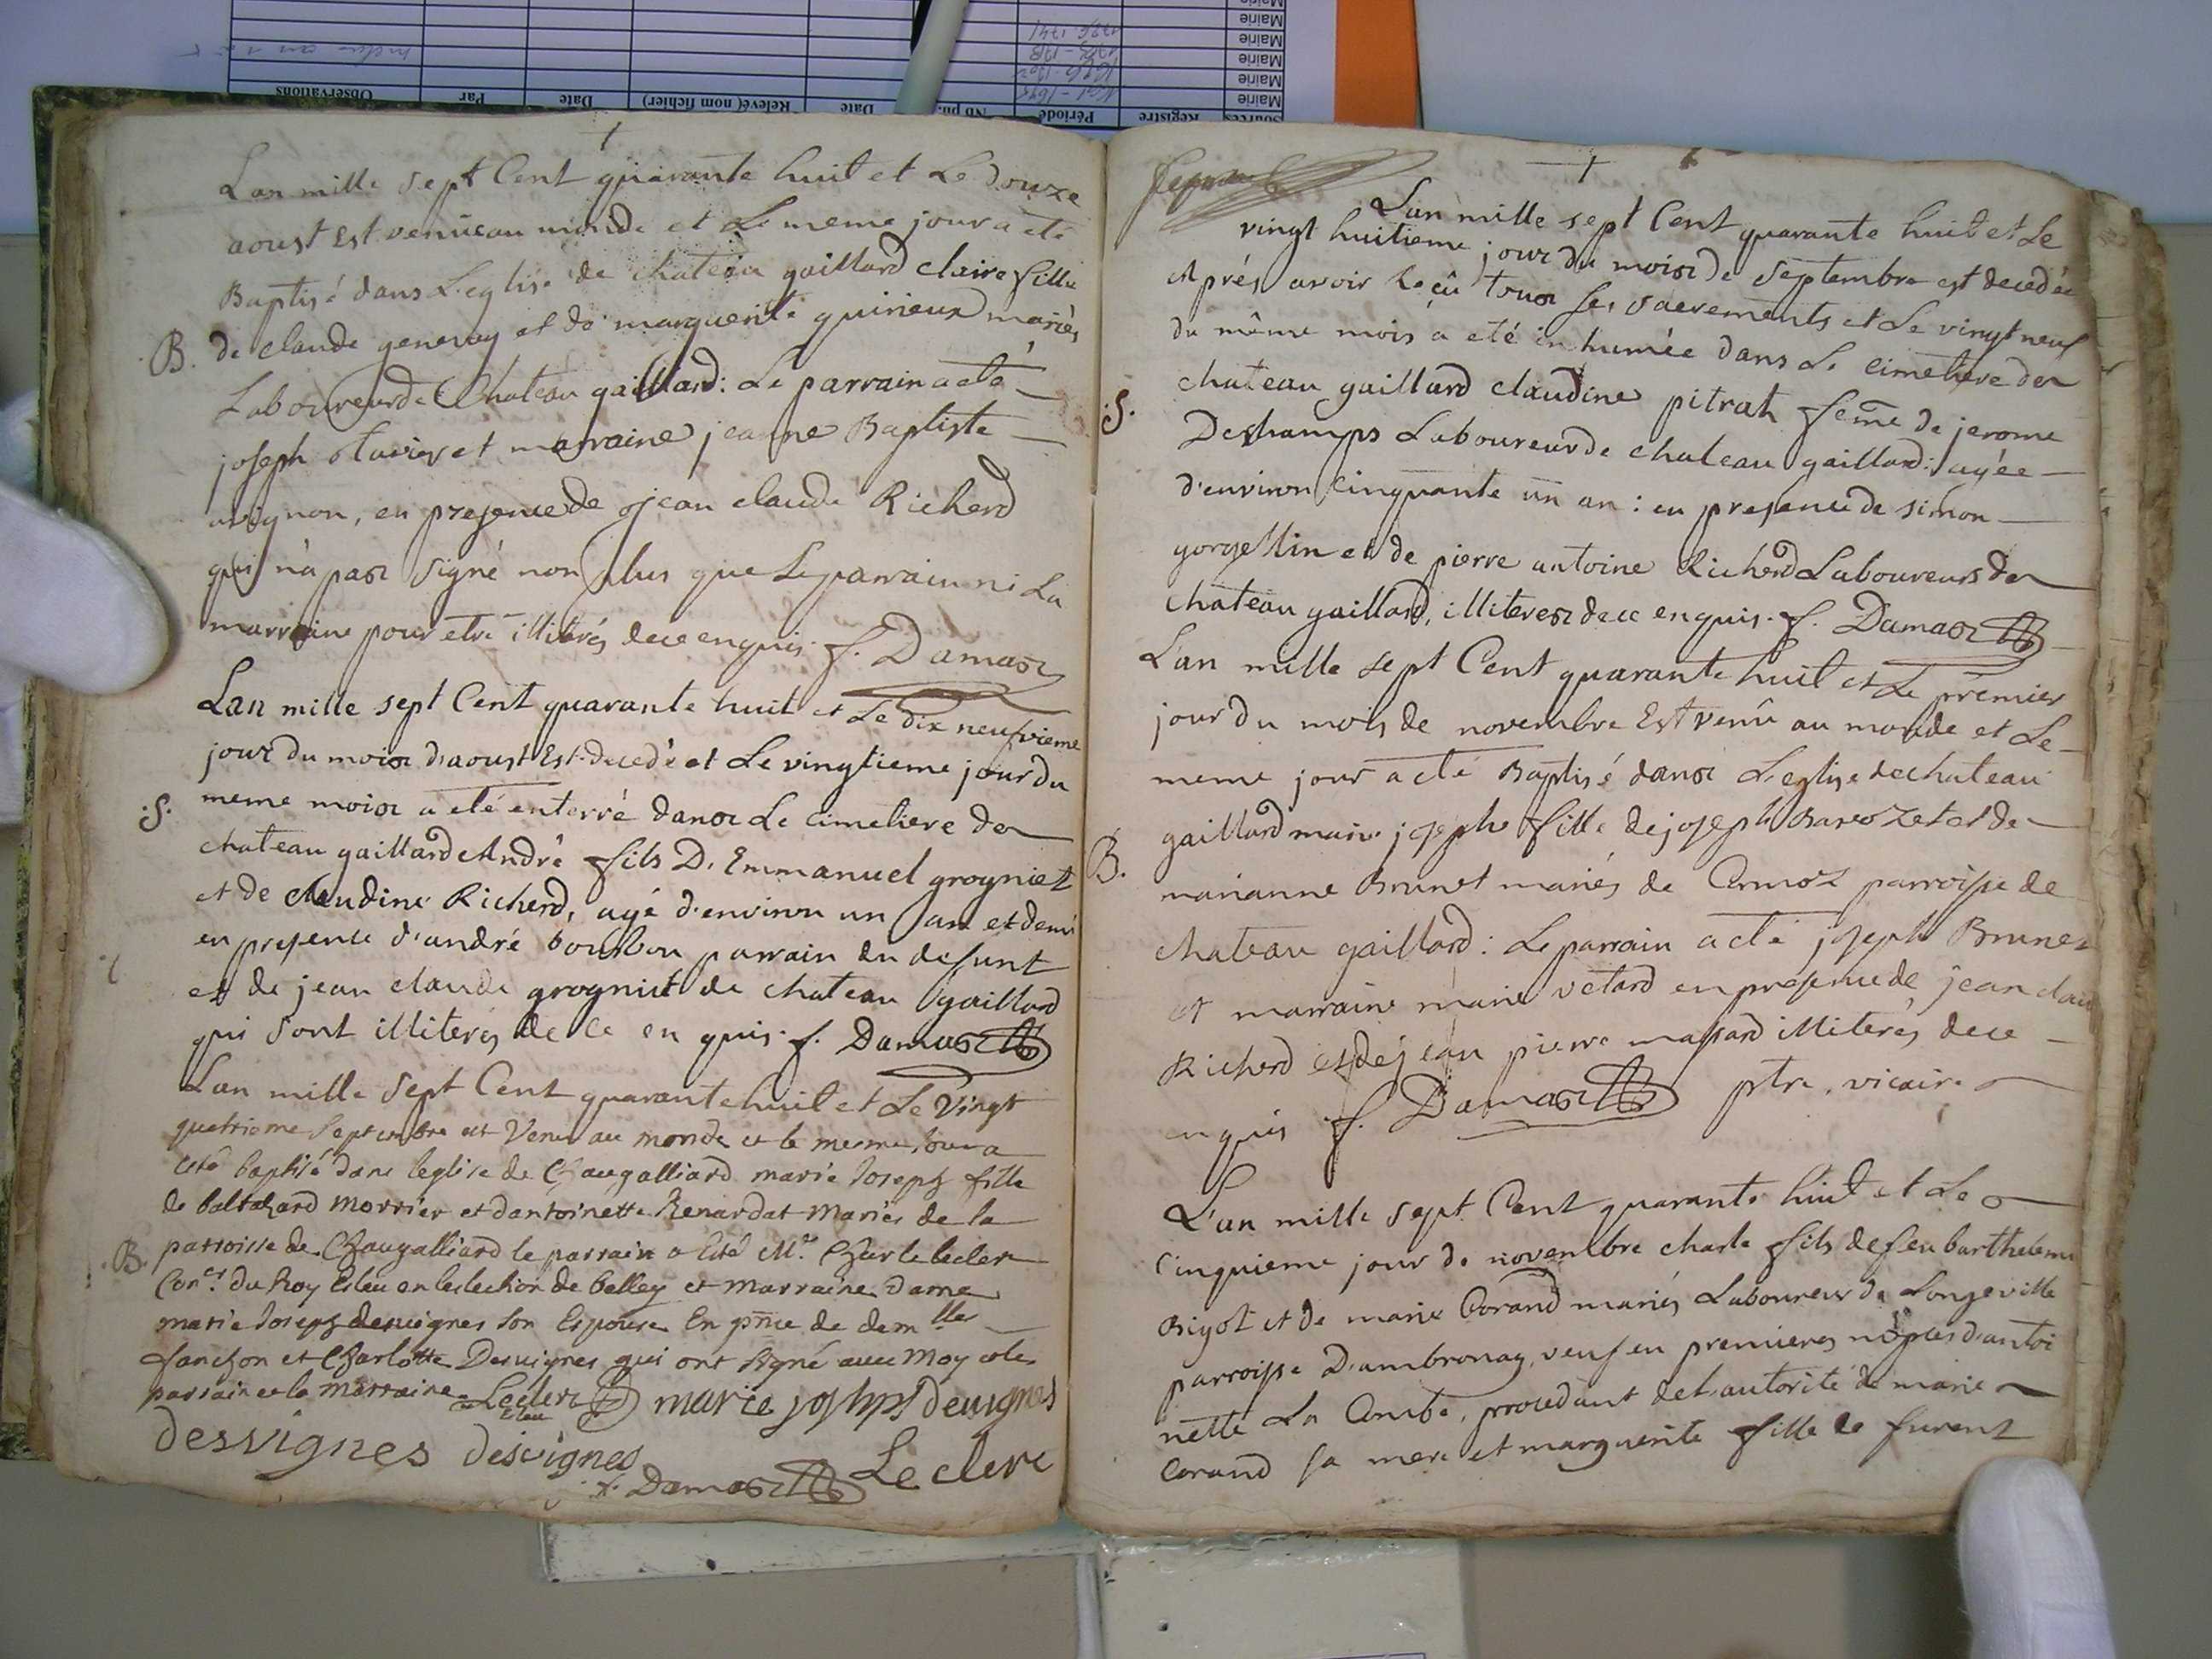 Sources Registre Période Nb ph. Date Relevé( nom fichier) Date Par Observations
Mairie
Mairie
Mairie
Mairie 1736-1741
Mairie
†
L'an mille sept Cent quarante huit et Le douze
aoust Est venüe au monde et Le meme jour a eté
Baptisé dans L'eglise de chateau gaillard claire fille
B. de claude genevay et de marguerite quirieux mariés
Laboureur de Chateau gaillard: Le parrain a eté
joseph et marraine jeanne Baptiste
avignon, en presence de jean claude Richerd
qui n'a pas signé non plus que Le parrain ni La
marraine pour etre illiterés de ce enquis. f. Damas
L'an mille sept Cent quarante huit et Le dix neufvieme
jour du mois d'aoust Est decedé et Le vingtieme jour du
S. meme mois a eté enterré dans Le cimetiere de
chateau gaillard André fils D'Emmanuel grogniet
et de claudine Richerd, agé d'environ un an et demi
en presence d'andré bourbon parrain du defunt
et de jean claude grogniet de chateau gaillard
qui sont illiterés de ce en quis. f. Damas
L'an mille sept Cent quarante huit et Le Vingt
quatrieme septembre est Venu au monde et le mesme jour a
esté baptisé dans leglise de Chaugalliard marie Joseph fille
de baltahard morrier et dantoinette Renardat Mariés de la
B. parroisse de Chaugalliard le parrain a Esté Mr. Charle lecler
Coner. du Roy Esleu en leslection de belley et marraine dame
marie Joseph desvignes son Espouse En pnce de demlles
fanchon et Charlotte Desvignes qui ont signé avec Moy et le
parrain et la marraine Leclerc Eleu marie joseph desvignes
desvignes desvignes
f. Damas Le clerc
†
L'an mille sept Cent quarante huit et Le
vingt huitieme jour du mois de septembre est decedée
Aprés avoir reçû tous ses sacrements et Le vingt neuf
du même mois a eté inhumée dans Le cimetiere de
S. chateau gaillard claudine pitrat feme de jerome
Deschamps Laboureur de chateau gaillard: agée
d'environ cinquante un an: en presence de simon
gorgellin et de pierre antoine Richerd Laboureurs de
chateau gaillard, illiteres de ce enquis. f. Damas
L'an mille sept Cent quarante huit et Le premier
jour du mois de novembre Est venû au monde et Le
meme jour a eté Baptisé dans L'eglise de chateau
gaillard marie josephe fille de joseph Barozet et de
B. marianne Brunet mariés de Cormoz parroisse de
chateau gaillard: Le parrain a eté joseph Brunet
et marraine marie vetard en presence de jean clau
Richerd et de jean pierre massard illiterés de ce
enquis f. Damas ptre. vicaire
L'an mille sept Cent quarante huit et Le
Cinquieme jour de novembre charle fils de feu barthelemi
Bigot et de marie Corand mariés Laboureur de Longeville
parroisse D'ambronay, veuf en premieres nopces d'antoi
nette La Combe, procedant de L'autorité de marie
Corand sa mere et marguerite fille de furent